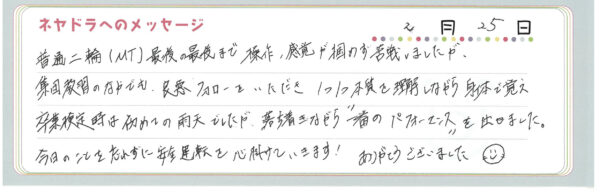 ネヤドラへのメッセージ
2月25日
普通二輪(MT)最後の最後まで操作、感覚が掴めず苦戦しましたが、
集団教習のなかでも、良案フォローをいただき 1つ1つ本質を理解しながら身体で覚え
卒業検定時は初めての雨天でしたが、落ち着きながら"一番のパフォーマンス"を出せました。
今日のことを忘れずに安全運転を心掛けていきます! ありがとうございました